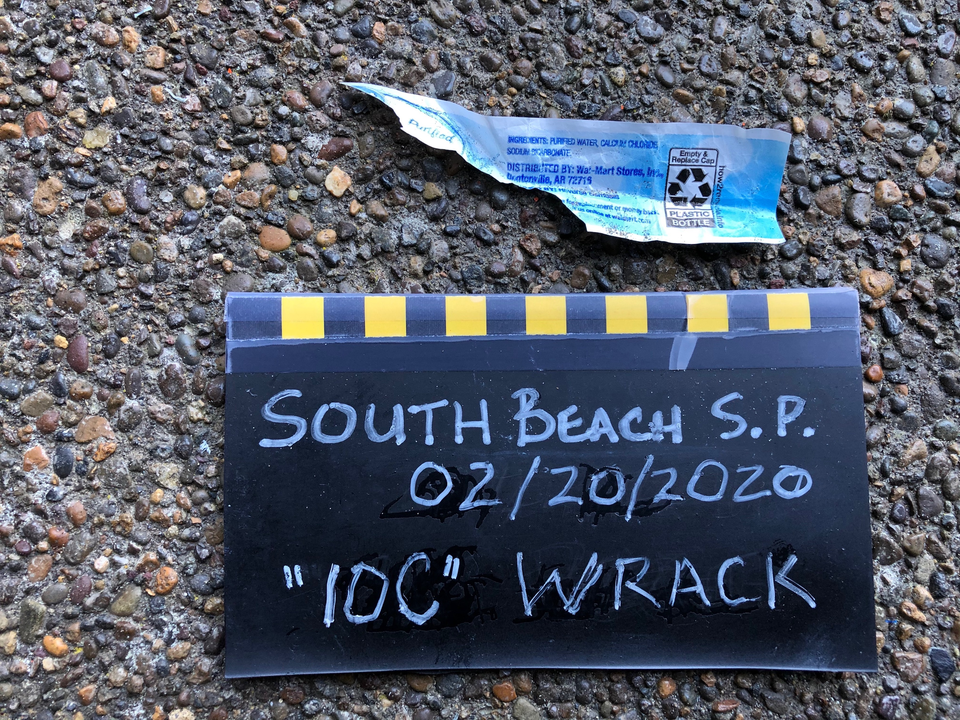 Purified
INGREDIENTS: PURIFIED WATER, CALCIUM CHLORIDE,
SODIUM BICARBONATE.
DISTRIBUTED BY: Wal-Mart Stores, Inc.,
Bentonville, AR 72716
Empty &
Replace Cap
PLASTIC
BOTTLE
SOUTH BEACH S.P.
02/20/2020
"10C" WRACK